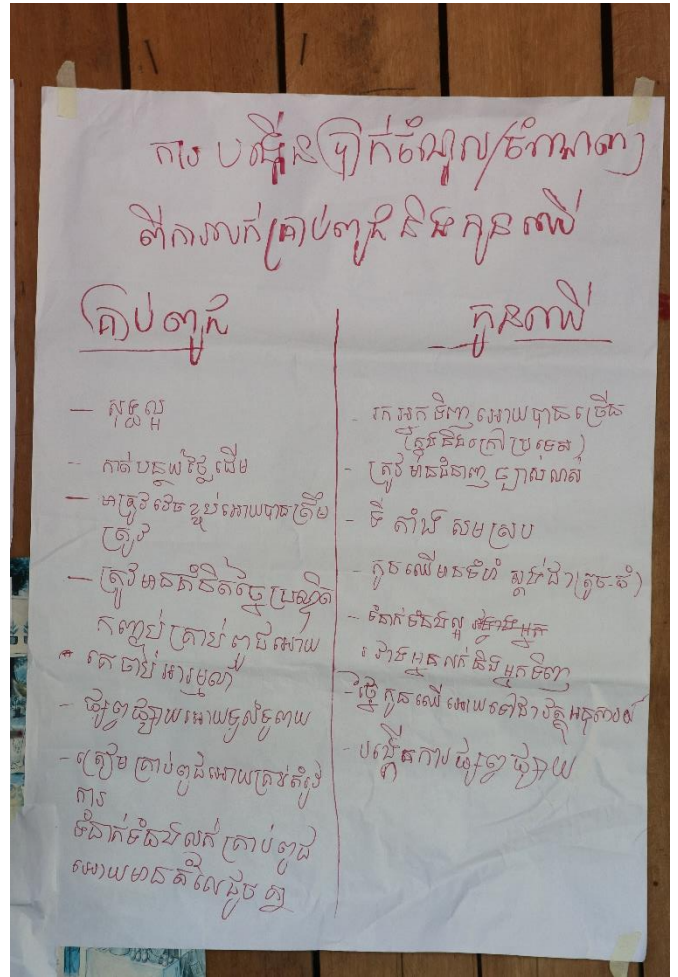 ការ បង្កើនប្រាក់ចំណូល/ចំណេញ
ពីការលក់គ្រាប់ពូជ និង កូន ឈើ
គ្រាប់ ពូជ
— សុទ្ធល្អ
- កាត់បន្ថយថ្លៃ ដើម
— ត្រូវវេចខ្ចប់អោយបានត្រឹម
ត្រូវ
— ត្រូវមានគំនិតច្នៃប្រឌិត
កញ្ចប់ គ្រាប់ ពូជអោយ
គេចាប់អារម្មណ៍
- ផ្សព្វផ្សាយអោយទូលំទូលាយ
- ត្រៀម គ្រាប់ពូជអោយគ្រប់តំរូវ
ការ
ទំនាក់ទំនងលក់ គ្រាប់ ពូជ
អោយមានតំលៃដូច គ្នា
កូនឈើ
- រក អ្នក ទិញ អោយ បាន ច្រើន
(ក្នុងនិងក្រៅ ប្រទេស)
- ត្រូវ មានជំនាញ ច្បាស់លាស់
- ទី តាំង សមស្រប
- កូនឈើមានទំហំ ស្តង់ដា (តូច-ធំ)
- ទំនាក់ទំនងល្អ
រវាងអ្នកលក់និងអ្នកទិញ
- ច្នៃ កូនឈើ អោយទៅជា វត្ថុអនុស្សាវរីយ៍
- បង្កើនការផ្សព្វផ្សាយ